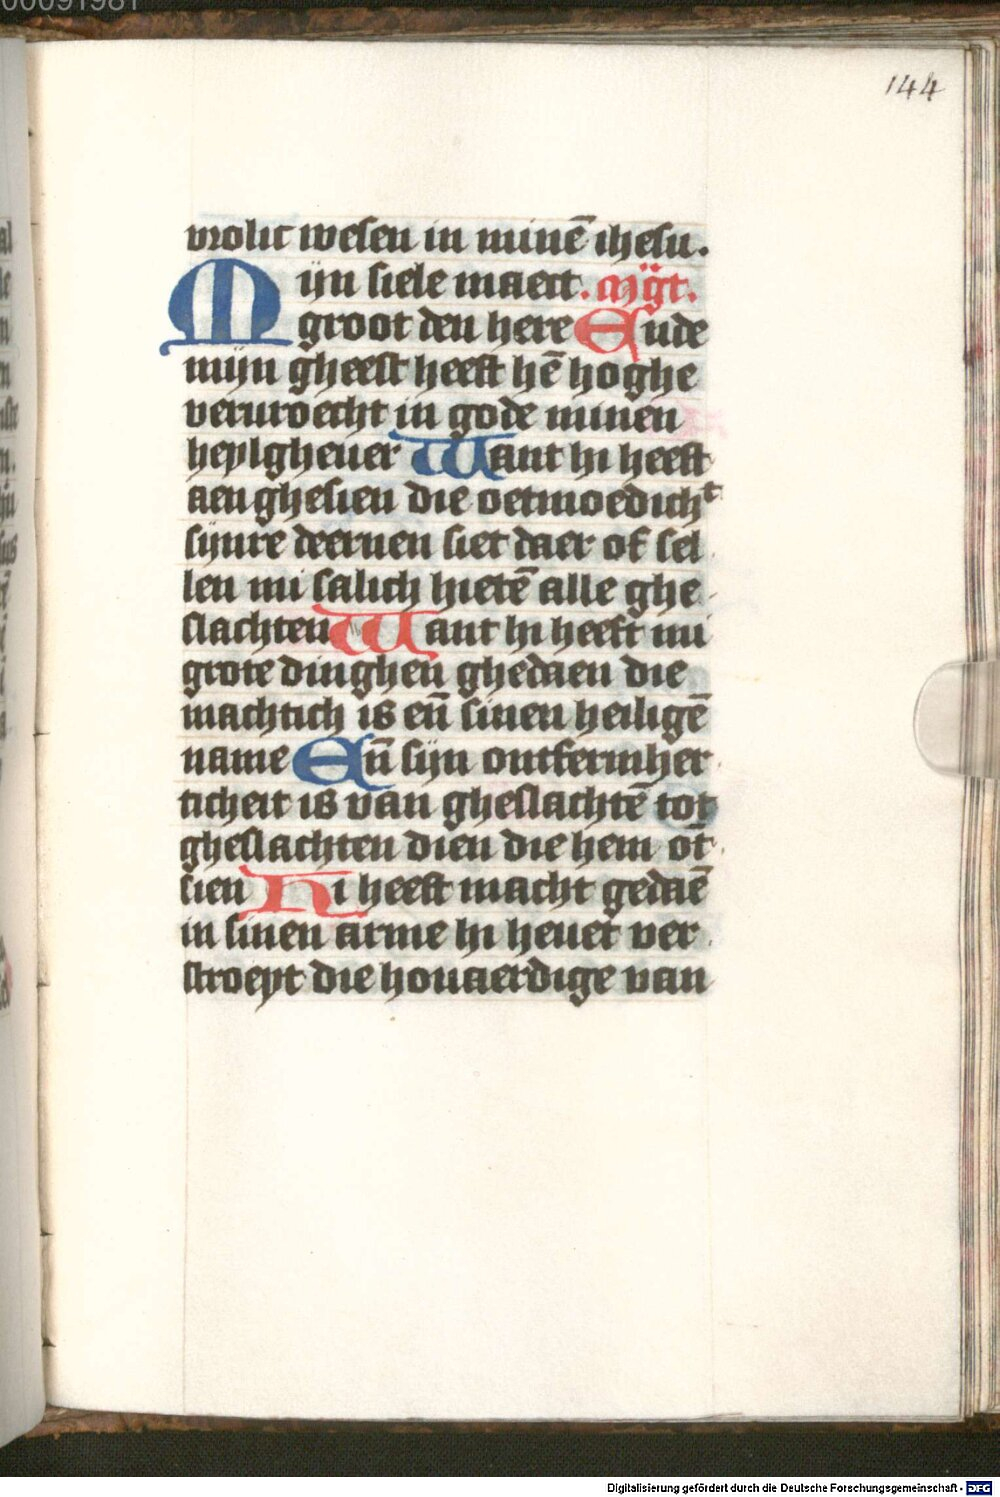 00091981
144
vrolic wesen in minē ihesu.
Mijn siele maect. mg̈t.
groot den here Ende
mijn gheest heeft hē hoghe
vervroecht in gode minen
heylghever Want hi heeft
aenghesien die oetmoedichᵗ
sijnre deernen siet daer of sel
len mi salich hietē alle ghe
slachten Want hi heeft mi
grote dinghen ghedaen die
machtich is eñ sinen heiligē
name Eñ sijn ontfermher
ticheit is van gheslachtē tot
gheslachten dien die hem ōt
sien Hi heeft macht gedaē
in sinen arme hi hevet ver
stroeyt die hovaerdige van
Digitalisierung gefördert durch die Deutsche Forschungsgemeinschaft - DFG